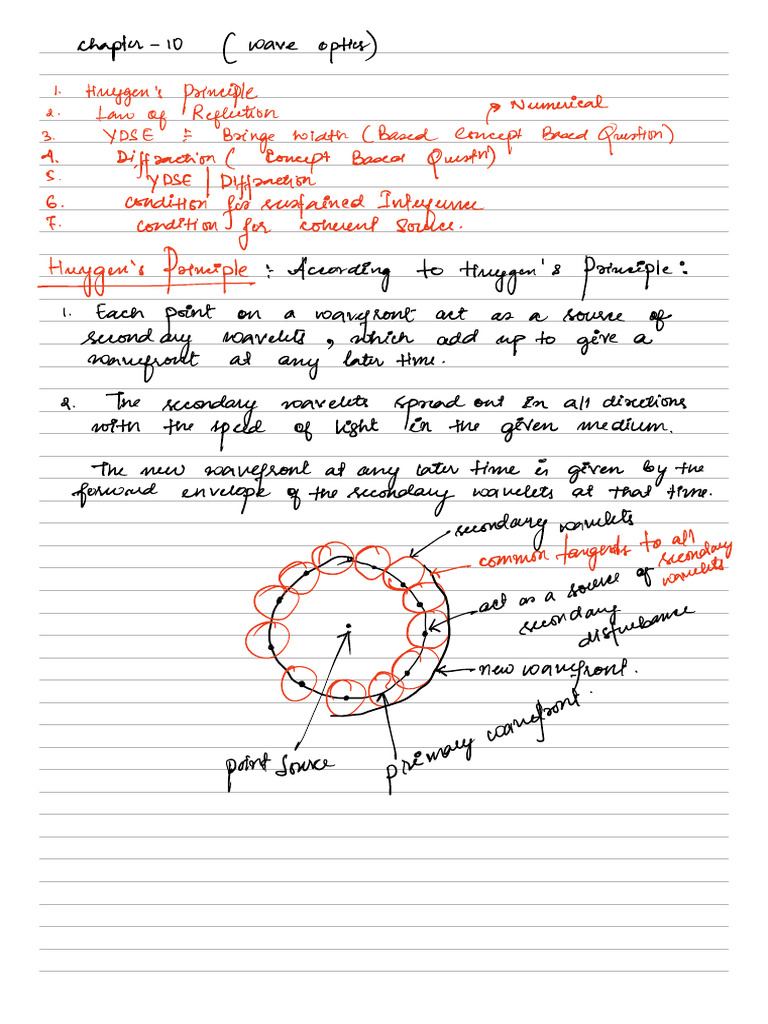 Chapter - 10 ( wave optics)
1. Huygen's Principle
2. Law of Reflection
→ Numerical
3. YDSE = Bringe width (Based Concept Based Question)
4. Diffraction ( Concept Based Questn)
5. YDSE | Diffraction
6. condition for sustained Inference
7. condition for coherent Source.
Huygen's Principle :- According to Huygen's Principle:
1. Each point on a wavefront act as a source of
secondary wavelets, which add up to give a
wavefront at any later time.
2. The secondary wavelets spread out in all directions
with the speed of light in the given medium.
The new wavefront at any later time is given by the
forward envelope of the secondary wavelets at that time.
secondary wavelets
common tangents to all
secondary
wavelets
act as a source of
secondary
disturbance
new wavefront.
primary wavefront.
point source